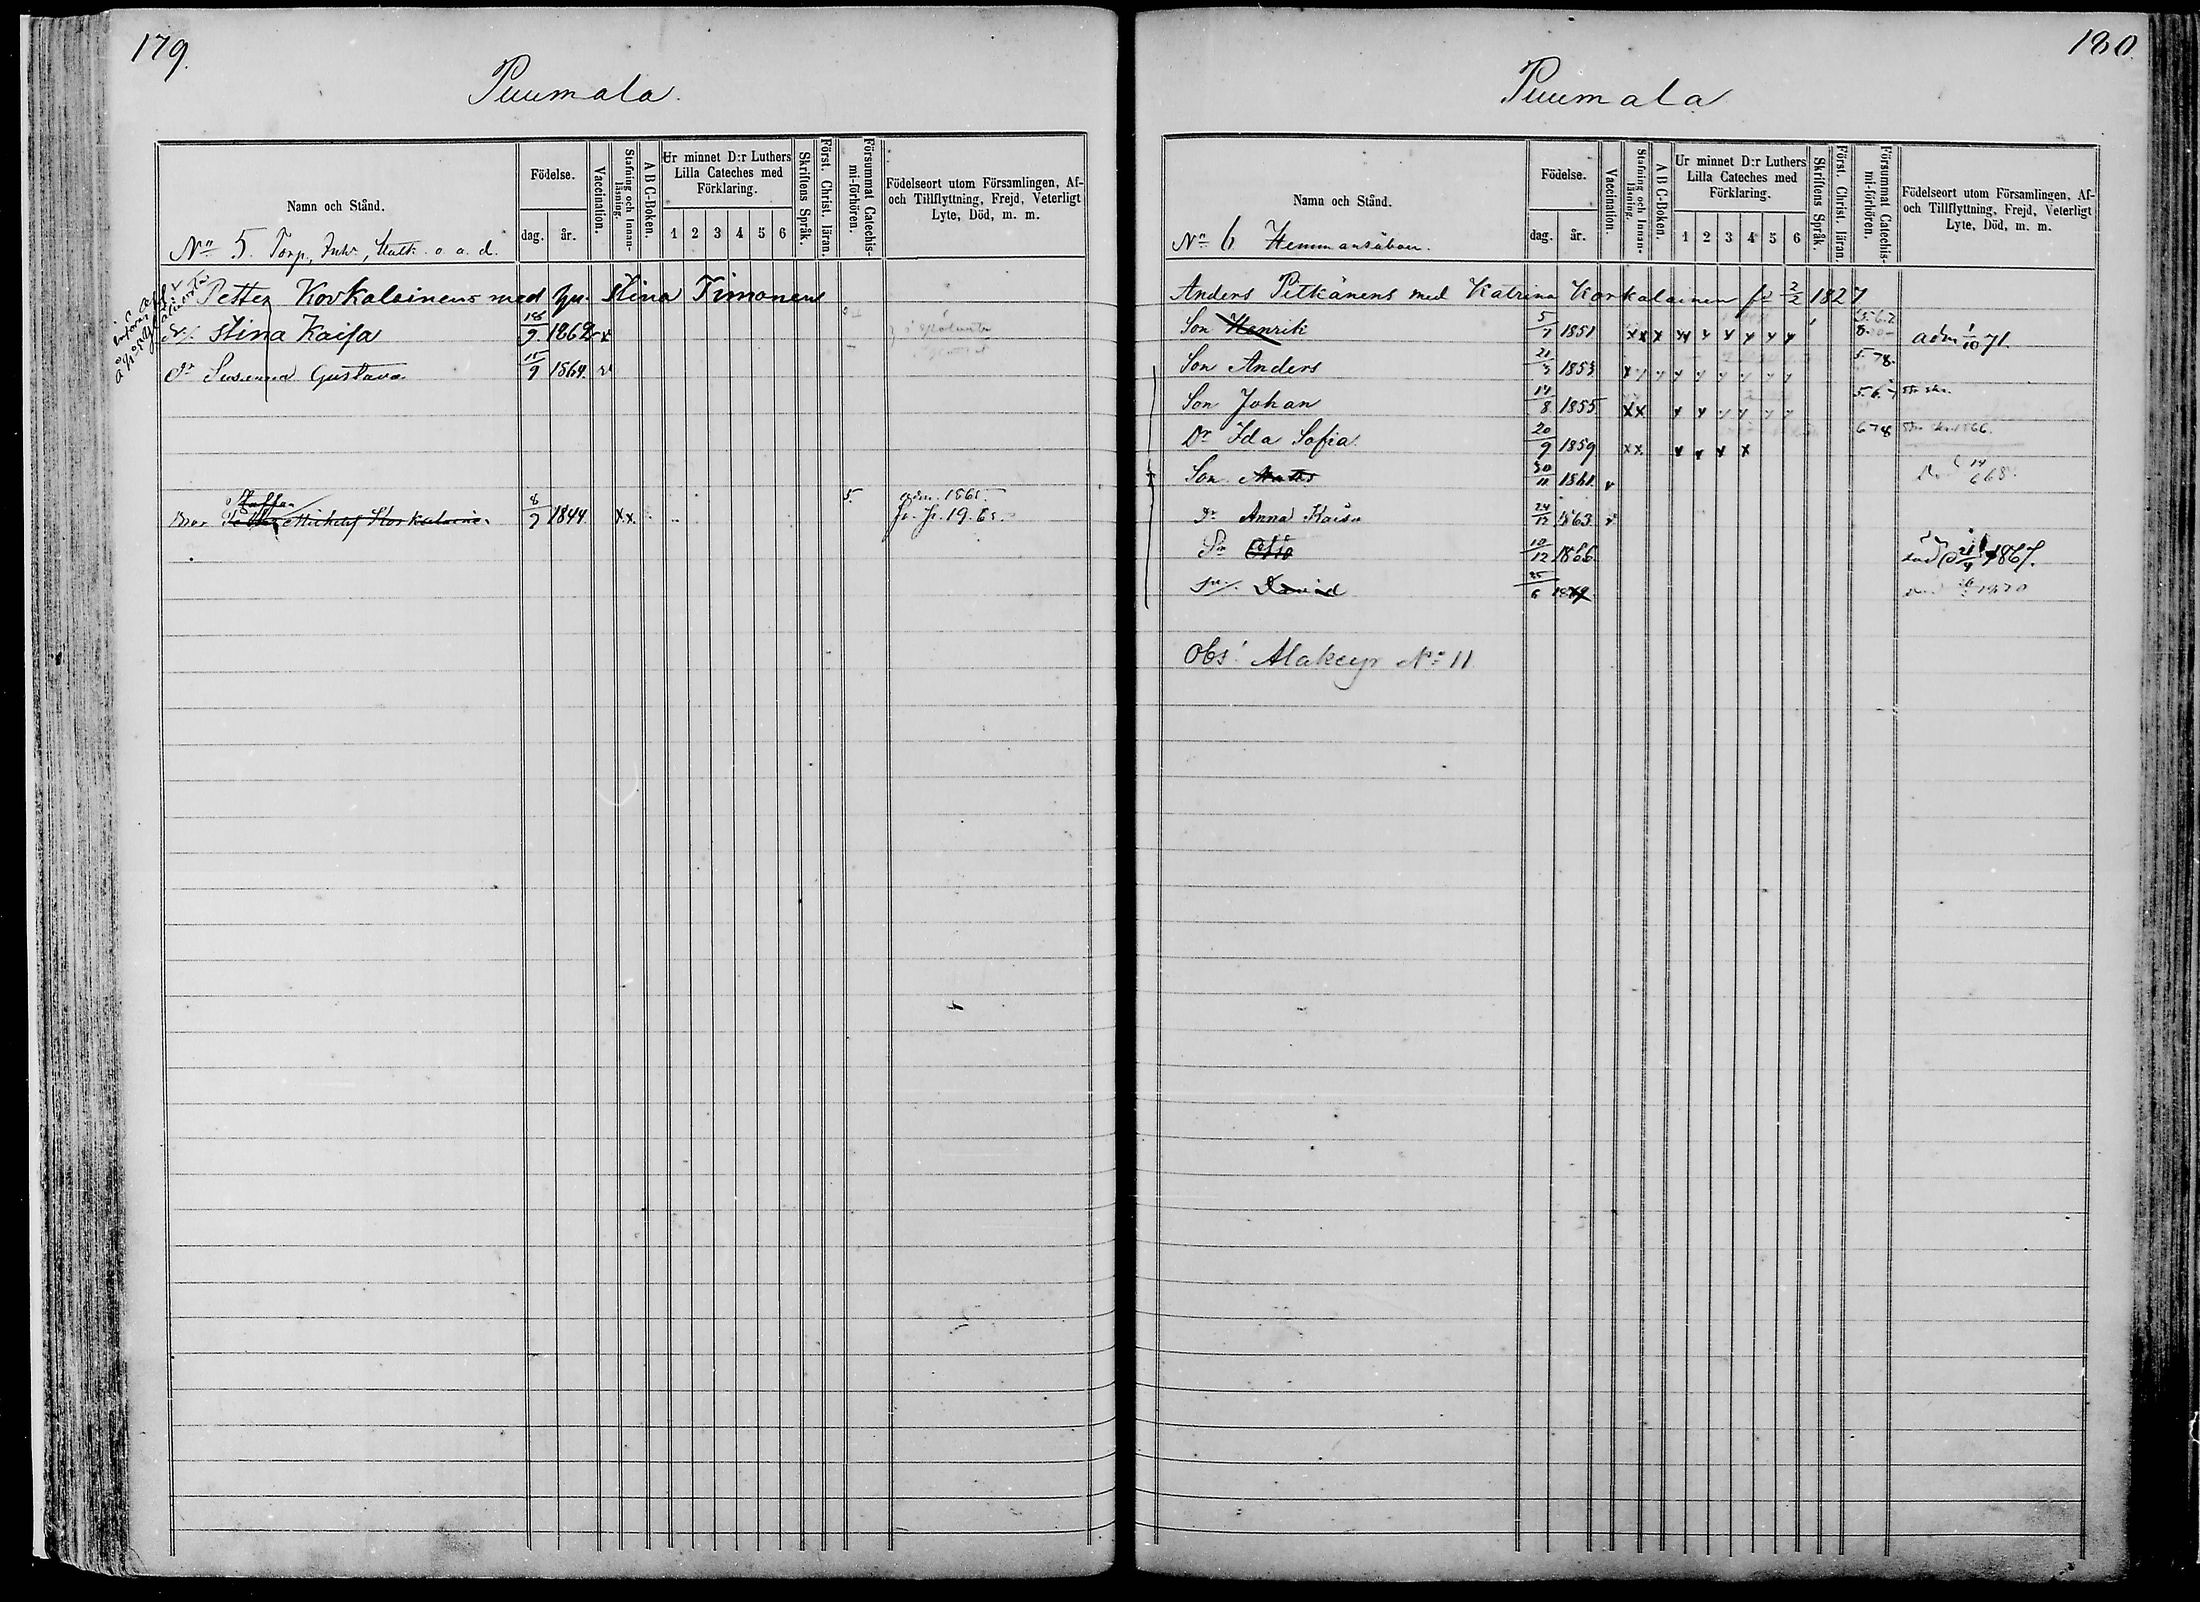 179.
Puumala.
Namn och Stånd.
Födelse.
dag. år.
Vaccination.
Stafning och Innan-läsning.
A B C-Boken.
Ur minnet D:r Luthers Lilla Cateches med Förklaring.
1 2 3 4 5 6
Skriftens Språk.
Först. Christ. läran.
Försummat Catechis-mi-förhören.
Födelseort utom Församlingen, Af-och Tillflyttning, Frejd, Veterligt Lyte, Död, m. m.
No 5. Torp., Inh., o. a. d.
Petter Korkalainens med hu. Stina Timonens
Stina Kaisa 18/9 1862 v x
Dr Susanna Gustava 15/9 1864. v
Staffan
Bror Michelsf Korkalainen 8/9 1844 x x 5. adm. 1865.
180.
Puumala
Namn och Stånd.
Födelse.
dag. år.
Vaccination.
Stafning och Innan-läsning.
A B C-Boken.
Ur minnet D:r Luthers Lilla Cateches med Förklaring.
1 2 3 4 5 6
Skriftens Språk.
Först. Christ. läran.
Försummat Catechis-mi-förhören.
Födelseort utom Församlingen, Af-och Tillflyttning, Frejd, Veterligt Lyte, Död, m. m.
No 6 Hemmansåboer.
Anders Pitkänens med Katrina Korkalainen fd 2/2 1827
Son Henrik 5/7 1851 adm 1/10 71.
Son Anders 1853 5. 78.
Son Johan 14/8 1855 5. 6. 7
Dr Ida Sofia. 20/9 1859 678
Son 30/11 1861. v
Dr Anna Kaisa 24/12 1863 v
Sn Otto 10/12 1866 1867.
Sn David 25/6 1870
Obs! Alakeyr No 11